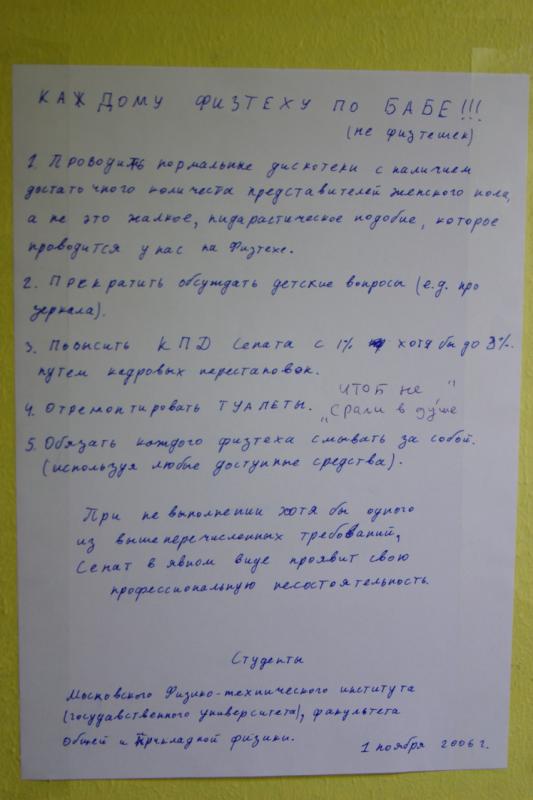 КАЖДОМУ ФИЗТЕХУ ПО БАБЕ!!!
(не физтешек)
1. Проводить нормальные дискотеки с наличием
достаточного количеста представителей женского пола,
а не это жалкое, пидарастическое подобие, которое
проводится у нас на Физтехе.
2. Прекратить обсуждать детские вопросы (e.g. про
зеркала).
3. Повысить КПД Сената с 1% хотя бы до 3%.
путем кадровых перестановок.
4. Отремонтировать ТУАЛЕТЫ. ЧТОБ не
„Срали в ду́ше"
5. Обязать каждого физтеха смывать за собой.
(используя любые доступные средства).
При не выполнении хотя бы одного
из вышеперечисленных требований,
Сенат в явном виде проявит свою
профессиональную несостоятельность.
Студенты
Московского Физико-технического института
(государственного университета), факультета
Общей и прикладной физики.
1 ноября 2006 г.